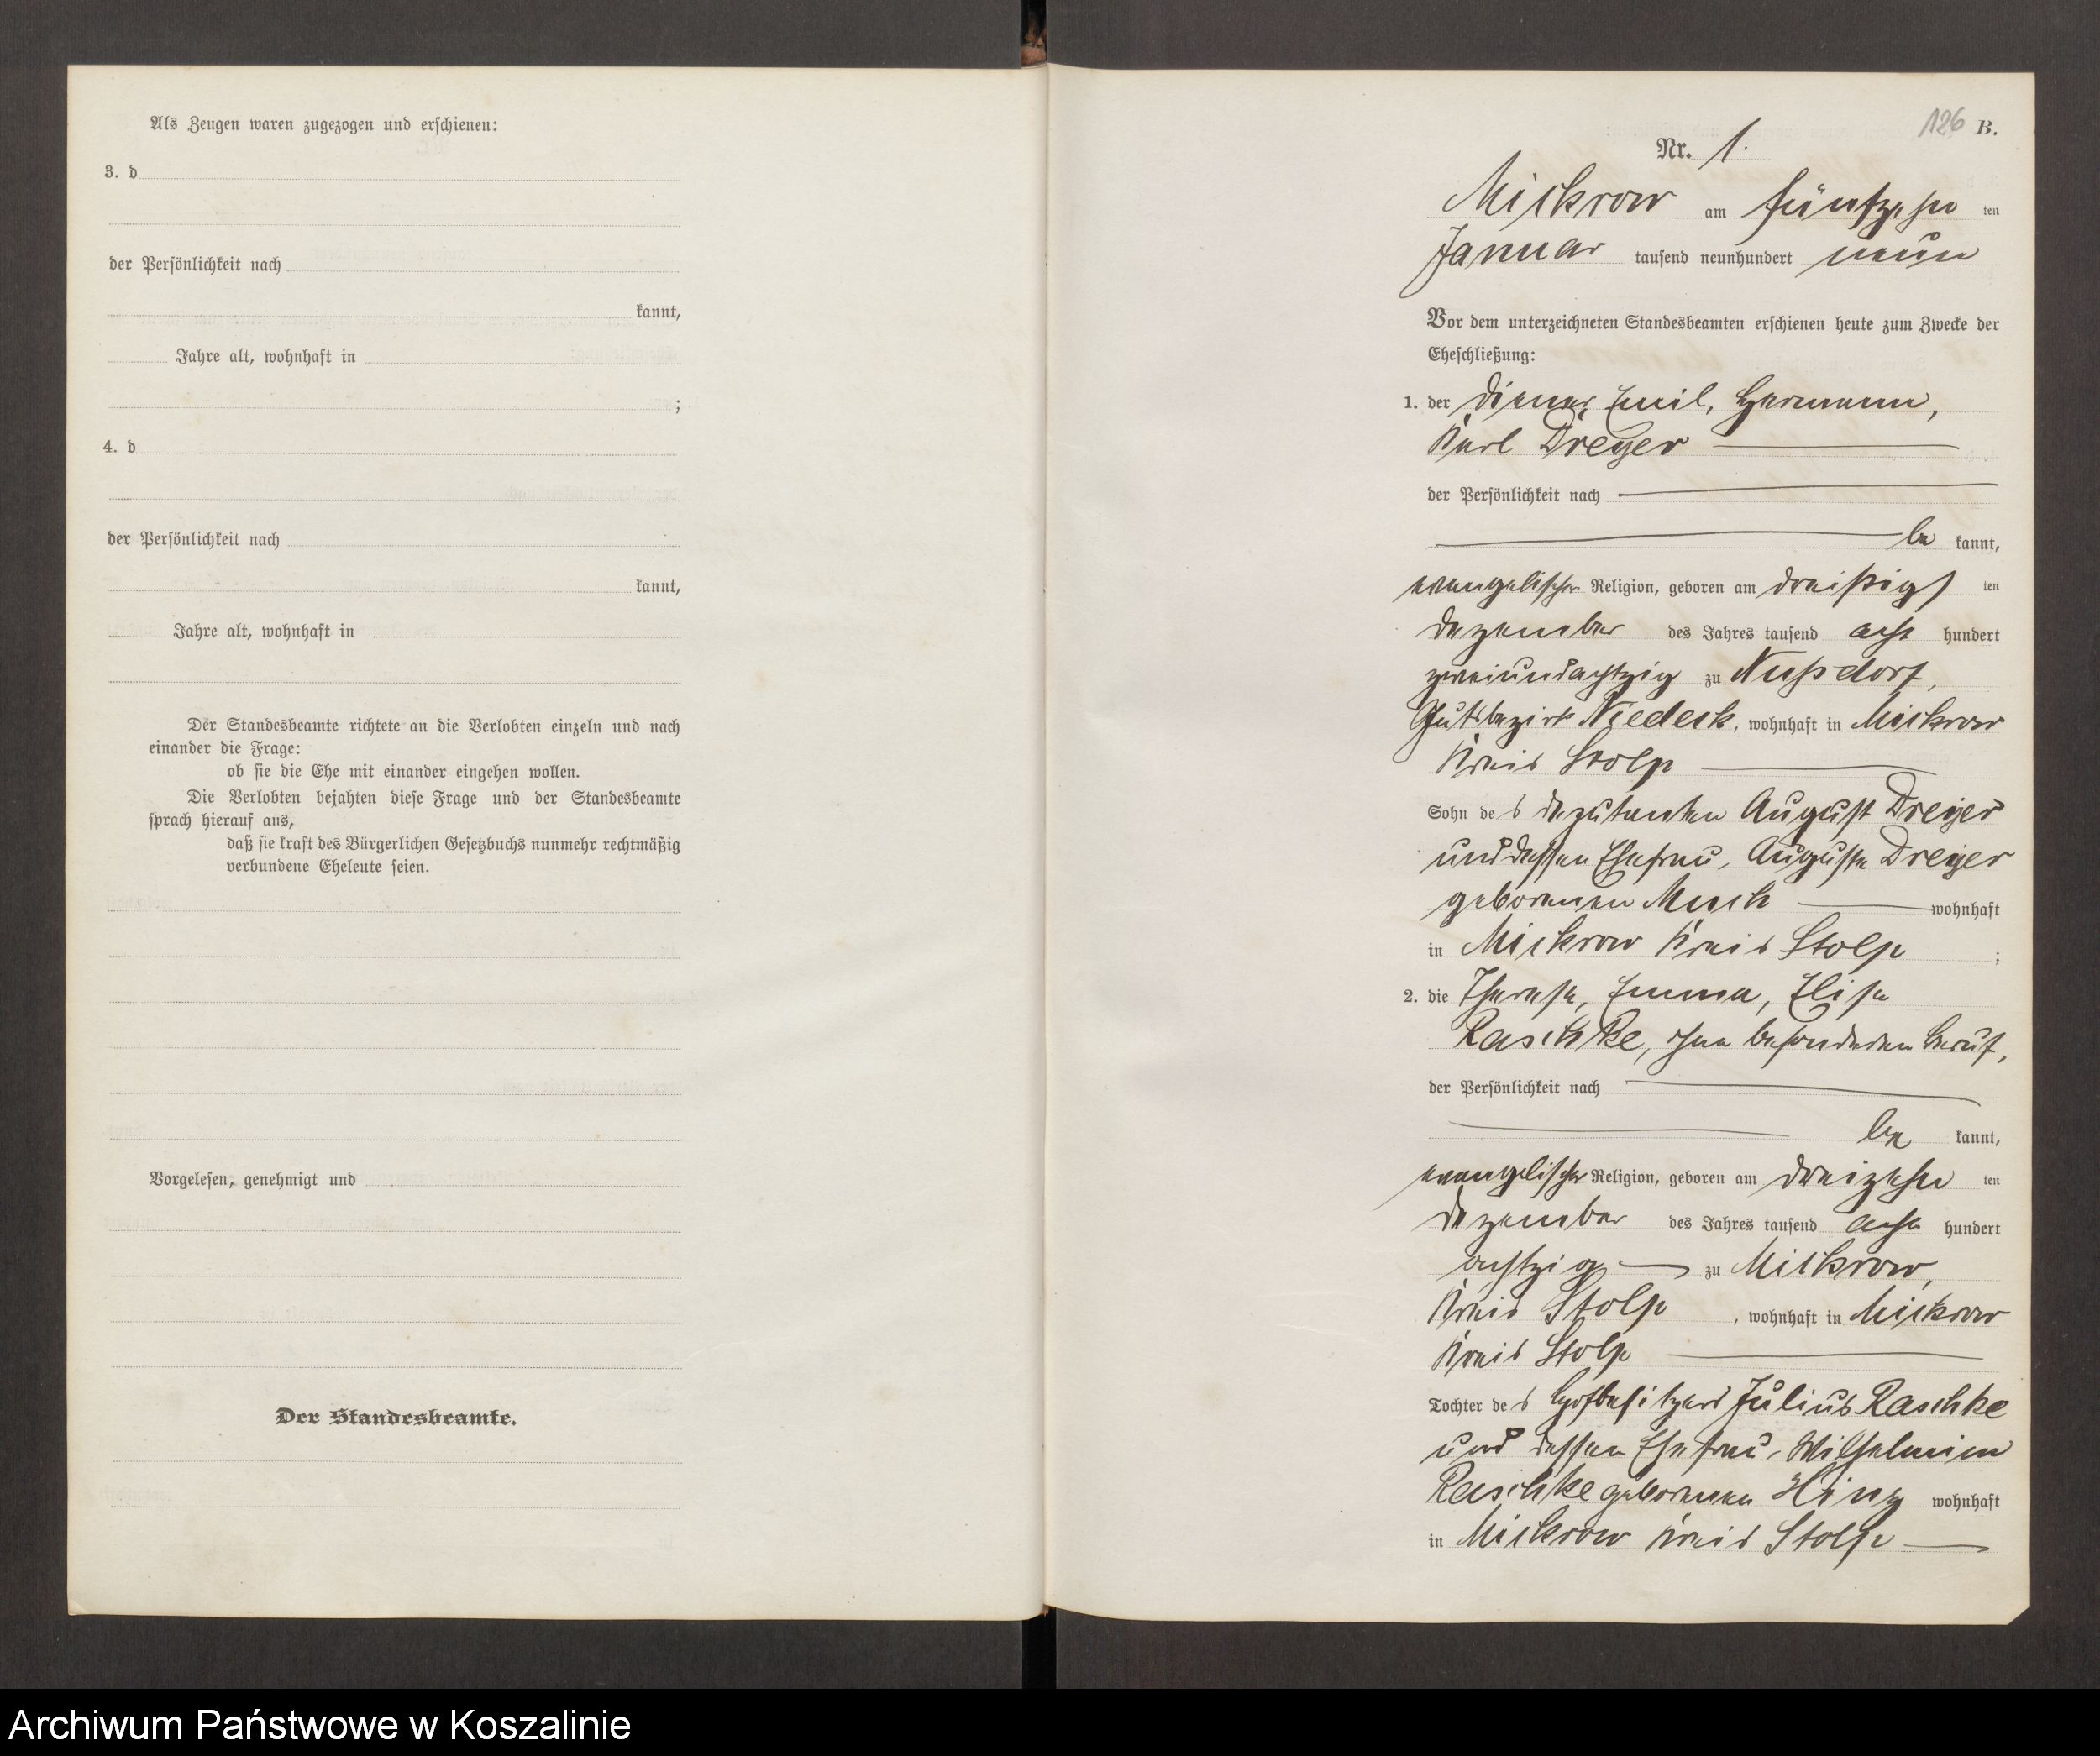 Als Zeugen waren zugezogen und erschienen:
3. d
der Persönlichkeit nach
kannt,
Jahre alt, wohnhaft in
;
4. d
der Persönlichkeit nach
kannt,
Jahre alt, wohnhaft in
Der Standesbeamte richtete an die Verlobten einzeln und nach
einander die Frage:
ob sie die Ehe mit einander eingehen wollen.
Die Verlobten bejahten diese Frage und der Standesbeamte
sprach hierauf aus,
daß sie kraft des Bürgerlichen Gesetzbuchs nunmehr rechtmäßig
verbundene Eheleute seien.
Vorgelesen, genehmigt und
Der Standesbeamte.
126 B.
Nr. 1.
Mickrow am fünfzehn ten
Januar tausend neunhundert neun
Vor dem unterzeichneten Standesbeamten erschienen heute zum Zwecke der
Eheschließung:
1. der Diener Emil, Hermann,
Karl Dreyer
der Persönlichkeit nach
be kannt,
evangelischer Religion, geboren am dreißigs ten
Dezember des Jahres tausend acht hundert
zweiundachtzig zu Nußdorf,
Gutsbezirk Niedeck, wohnhaft in Mickrow
Kreis Stolp
Sohn des August Dreyer
und dessen Ehefrau, Auguste Dreyer
geborenen Musch wohnhaft
in Mickrow Kreis Stolp ;
2. die Therese, Emma, Elise
Raschke, ohne besonderen Beruf,
der Persönlichkeit nach
be kannt,
evangelischer Religion, geboren am dreizehn ten
Dezember des Jahres tausend acht hundert
achtzig zu Mickrow,
Kreis Stolp , wohnhaft in Mickrow
Kreis Stolp
Tochter des Hofbesitzers Julius Raschke
und dessen Ehefrau, Wilhelmine
Raschke geborenen Hinz wohnhaft
in Mickrow Kreis Stolp
Archiwum Państwowe w Koszalinie